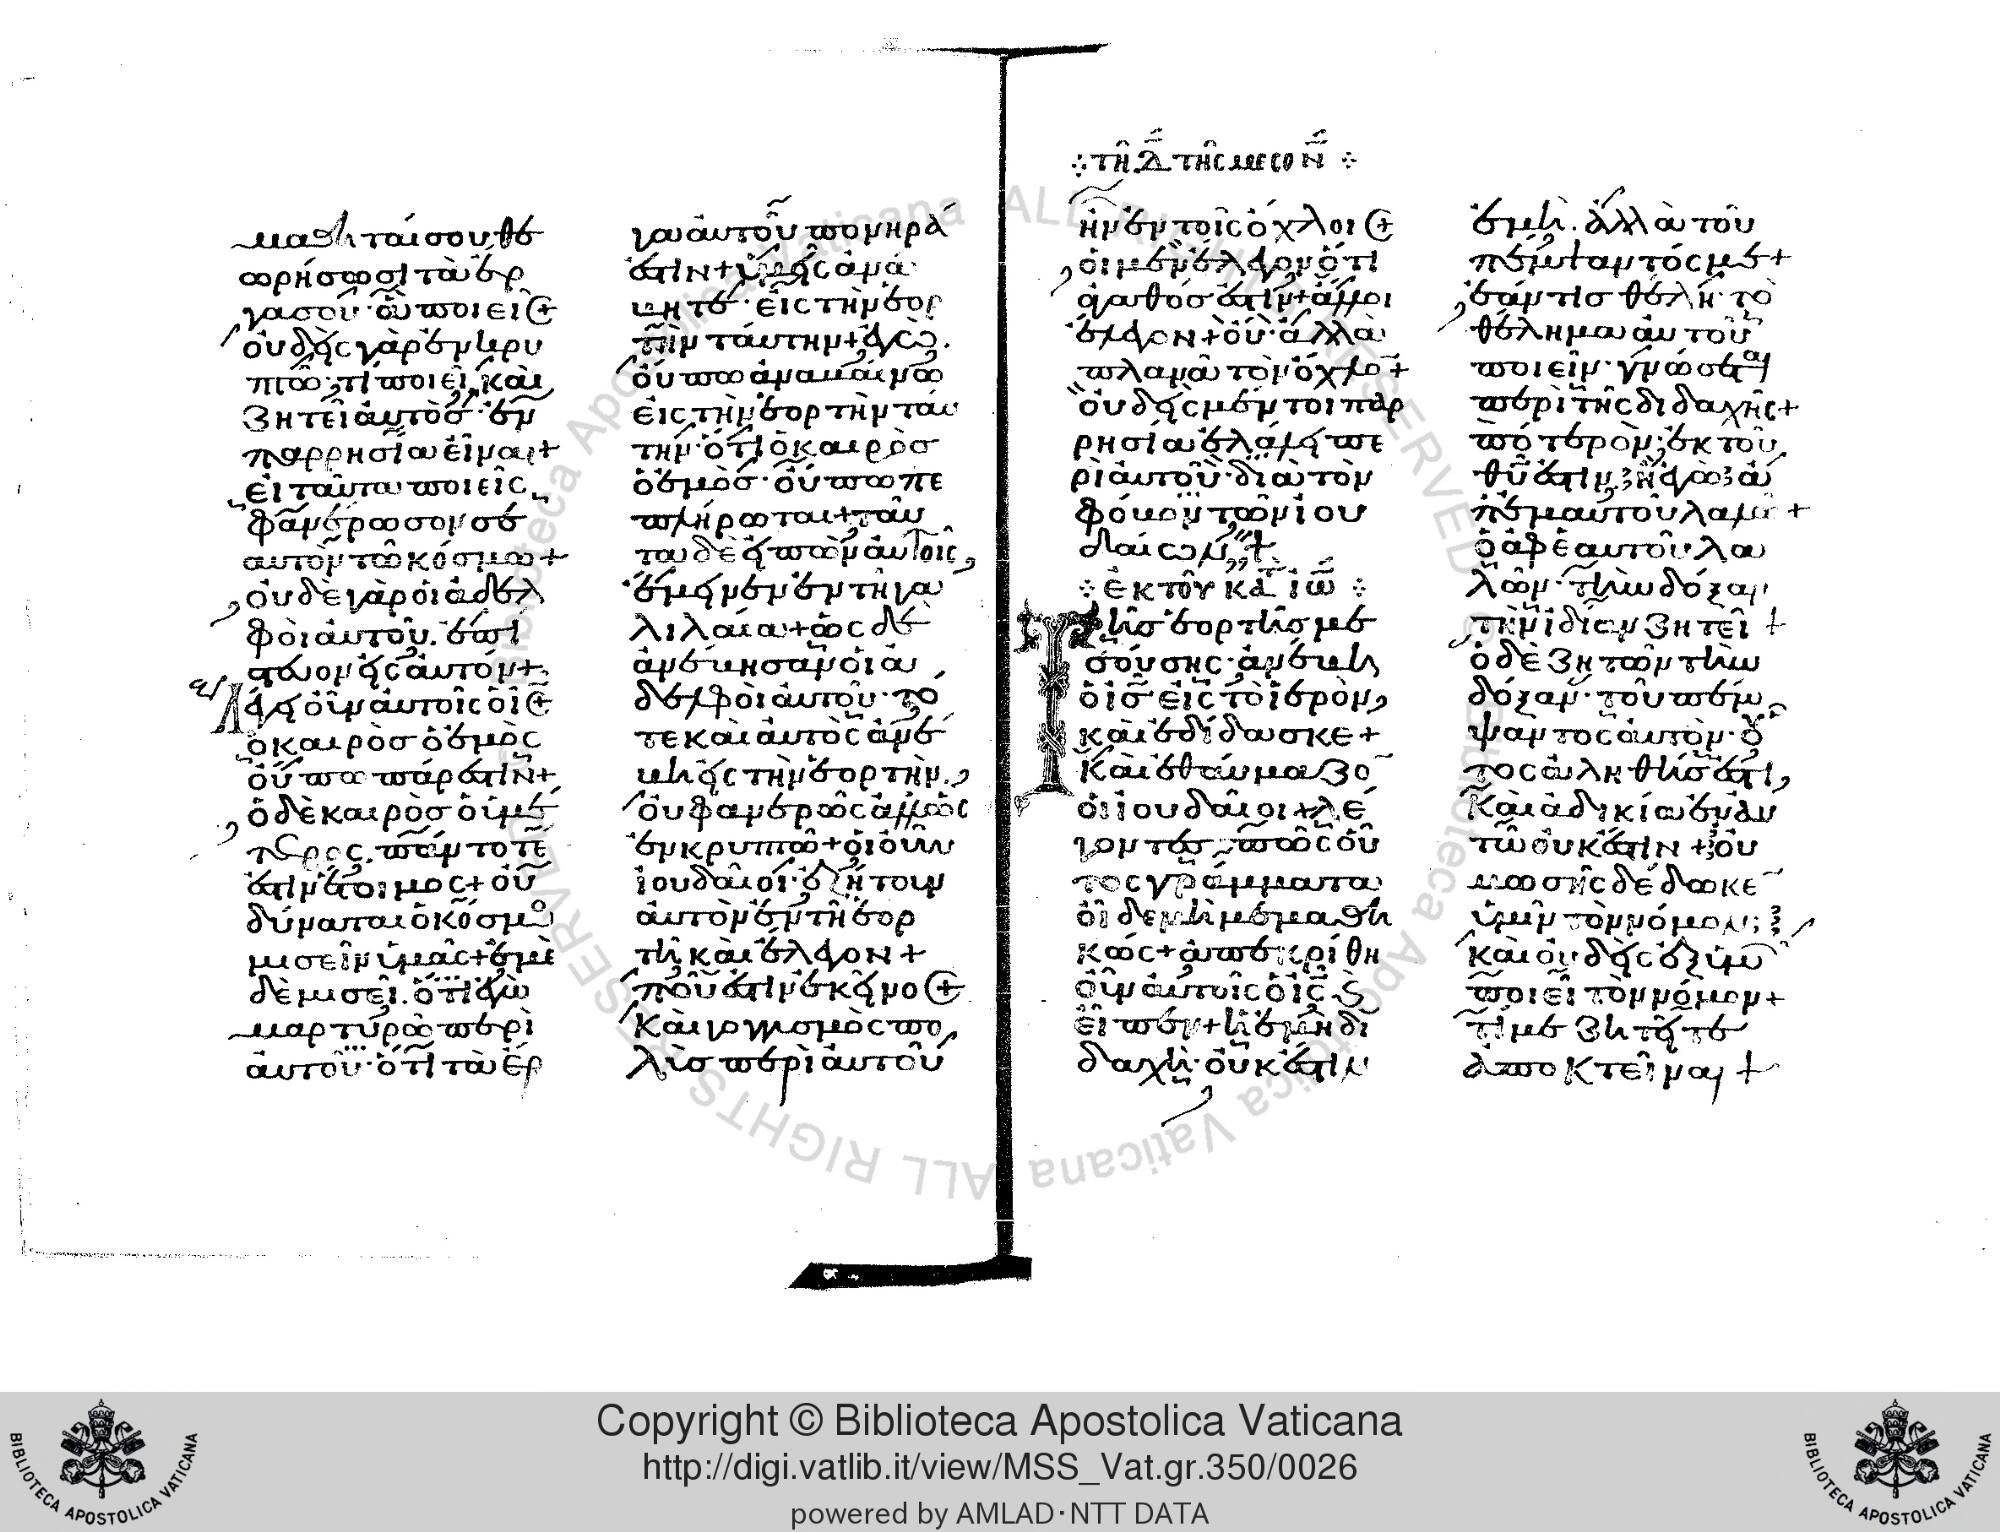 μαθηταί σου θε
ωρήσωσι τὰ ἔρ
γα σου· ἃ ποιεῖς+
οὐδεὶς γὰρ ἐν κρυ
πτῶ· τί ποιεῖ, καὶ
ζητεῖ αὐτὸς· ἐν
παρρησία εἶναι+
εἰ ταῦτα ποιεῖς,
φανέρωσον σε
αὐτὸν τῶ κόσμω+
οὐδὲ γὰρ οἱ ἀδελ
φοὶ αὐτοῦ. ἐπί
στευον εἰς αὐτόν+
Λέγει οὖν αὐτοῖς ὁ ις+
ὁ καιρὸς ὁ ἐμὸς
οὔπω πάρεστιν+
ὁ δὲ καιρὸς ὁ ὑμέ
τερος. πάντοτε
ἐστιν ἕτοιμος+ οὐ
δύναται ὁ κόσμος
μισεῖν ὑμᾶς+ ἐμὲ
δὲ μισεῖ. ὅτι ἐγὼ
μαρτυρῶ περὶ
αὐτοῦ· ὅτι τὰ ἔρ
γα αὐτοῦ πονηρά
ἐστιν+ ὑμεῖς ἀνά
βητε· εἰς τὴν ἑορ
τὴν ταύτην+ ἐγὼ.
οὔπω ἀναβαίνω
εἰς τὴν ἑορτὴν ταύ
την· ὅτι ὁ καιρὸς
ὁ ἐμὸς· οὔπω πε
πλήρωται+ ταῦ
τα δὲ εἰπὼν αὐτοῖς,
ἔμεινεν ἐν τῆ γα
λιλαία+ ὡς δὲ
ἀνέβησαν οἱ ἀ
δελφοὶ αὐτοῦ· τό
τε καὶ αὐτὸς ἀνέ
βη εἰς τὴν ἑορτὴν.,
οὐ φανερῶς ἀλλ' ὡς
ἐν κρυπτῶ+ οἱ οὖν
ἰουδαῖοι· ἐζήτουν
αὐτὸν ἐν τῆ ἑορ
τῆ καὶ ἔλεγον+
ποῦ ἐστιν ἐκεῖνος+
Καὶ γογγυσμὸς πο
λὺς περὶ αὐτοῦ
⁘ τῆ Δ τῆς μεσον ⁘
ἦν ἐν τοῖς ὄχλοις+
οἱ μὲν ἔλεγον ὅτι
ἀγαθός ἐστιν+ ἄλλοι
ἔλεγον+ οὔ· ἀλλὰ
πλανᾶ τὸν ὄχλον+
οὐδεὶς μέντοι παρ
ρησία ἐλάλει πε
ρὶ αὐτοῦ· διὰ τὸν
φόβον τῶν ἰου
δαίων+
⁘ ἐκ τοῦ κατ ιω ⁘
Τῆς ἑορτῆς με
σούσης· ἀνέβη
ὁ ις εἰς τὸ ἱερὸν,
καὶ ἐδίδασκε+
Καὶ ἐθαύμαζον
οἱ ἰουδαῖοι+ λέ
γοντες· πῶς οὗ
τος γράμματα
οἶδε μὴ μεμαθη
κώς+ ἀπεκρίθη
οὖν αὐτοῖς ὁ ις, καὶ
εἶπεν+ ἡ ἐμὴ δι
δαχὴ· οὐκ ἔστιν
ἐμὴ. ἀλλὰ τοῦ
πέμψαντός με+
ἐάν τις θέλη· τὸ
θέλημα αὐτοῦ
ποιεῖν· γνώσεται
περὶ τῆς διδαχῆς+
πότερον; ἐκ τοῦ
θυ ἐστιν; ἢ ἐγὼ ἀ
π' ἐμαυτοῦ λαλῶ+
ὁ ἀφ' ἑαυτοῦ λα
λῶν· τὴν δόξαν
τὴν ἰδίαν ζητεῖ+
ὁ δὲ ζητῶν τὴν
δόξαν· τοῦ πέμ
ψαντος αὐτὸν· οὗ
τος ἀληθής ἐστι,
Καὶ ἀδικία ἐν αὐ
τῶ οὐκ ἔστιν+ οὐ
μωσῆς δέδωκεν
ὑμῖν τὸν νόμον;
καὶ οὐδεὶς ἐξ ὑμῶν
ποιεῖ τὸν νόμον+
Τί με ζητεῖτε
ἀποκτεῖναι+
Copyright © Biblioteca Apostolica Vaticana
http://digi.vatlib.it/view/MSS_Vat.gr.350/0026
powered by AMLAD·NTT DATA
BIBLIOTECA APOSTOLICA VATICANA
BIBLIOTECA APOSTOLICA VATICANA
Biblioteca Apostolica Vaticana ALL RIGHTS RESERVED
Biblioteca Apostolica Vaticana ALL RIGHTS RESERVED